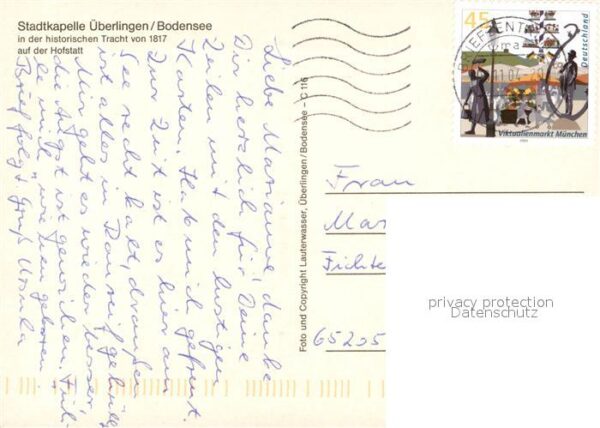 Stadtkapelle Überlingen/Bodensee
in der historischen Tracht von 1817
auf der Hofstatt
Liebe Marianne, danke
Dir herzlich für Deine
Zeilen mit den lustigen
Karten. Hab mich gefreut.
Zur Zeit ist es hier am
See recht kalt, draußen
ist alles in Rauhreif gehüllt
Mir geht es wieder besser,
die Angst ist gewichen. Füh-
le mich "wie neu geboren".
Brief folgt. Gruß Ursula
Foto und Copyright Lauterwasser, Überlingen/Bodensee – C 116
BRIEFZENTRUM
45
Deutschland
Viktualienmarkt München
Frau
Mar
Fichte
65205
privacy protection
Datenschutz